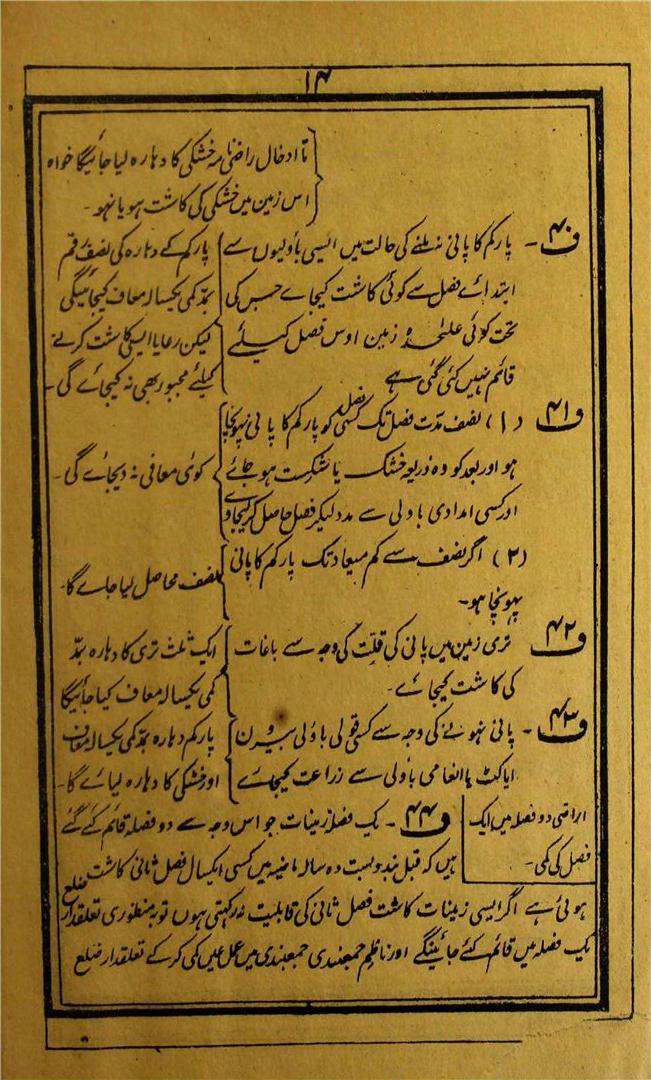 ۱۴
تا ادخال راضی نامہ خشکی کا دہارہ لیا جائیگا خواہ
اس زمین میں خشکی کی کاشت ہو یا نہو ۔
ف۴۰ ۔ پارکم کا پانی نہ ملنے کی حالت میں ایسی باؤلیوں سے پارکم کے دہارہ کی نصف رقم
ابتدائے فصل سے کوئی کاشت کیجاے جس کی بمدّ کمی یکسالہ معاف کیجائیگی
تحت کوئی علٰحدہ زمین اوس فصل کیلئے لیکن رعایا ایسی کاشت کرنے
قائم نہیں کی گئی ہے کیلئے مجبور بھی نہ کیجاے گی ۔
ف۴۱ (۱) نصف مدت فصل تک کسی فصل کو پارکم کا پانی پہونچا
ہو اور بعد کو وہ ذریعہ خشک یا شکست ہو جائے کوئی معافی نہ دیجاے گی ۔
اور کسی امدادی باولی سے مدد لیکر فصل حاصل کر لیجاوے
(۲) اگر نصف سے کم میعاد تک پارکم کا پانی نصف محاصل لیا جاے گا ۔
پہونچا ہو ۔
ف۴۲ تری زمین میں پانی کی قلّت کی وجہ سے باغات ایک ثلث تری کا دہارہ بمدّ
کی کاشت کیجاے ۔ کمی یکسالہ معاف کیا جائیگا
ف۴۳ ۔ پانی نہونے کی وجہ سے کسی قولی باؤلی بیرون پارکم دہارہ بمدّ کمی یکسالہ معاف
ایاکٹ یا انعامی باؤلی سے زراعت کیجاے اور خشکی کا دہارہ لیا جاے گا ۔
اراضی دو فصلہ میں ایک ف۴۴ ۔ یک فصلہ زمینات جو اس وجہ سے دو فصلہ قائم کے گئے
فصل کی کمی ۔ ہیں کہ قبل بندوبست دہ سالہ ماضیہ میں کسی ایکسال فصل ثانی کاشت
ہوئی ہے اگر ایسی زمینات کاشت فصل ثانی کی قابلیت نہ رکہتی ہوں تو بہ منظوری تعلقدار ضلع
یک فصلہ میں قائم کئے جائینگے اور ناظم جمعبندی جمعبندی میں عمل کمی کر کے تعلقدار ضلع